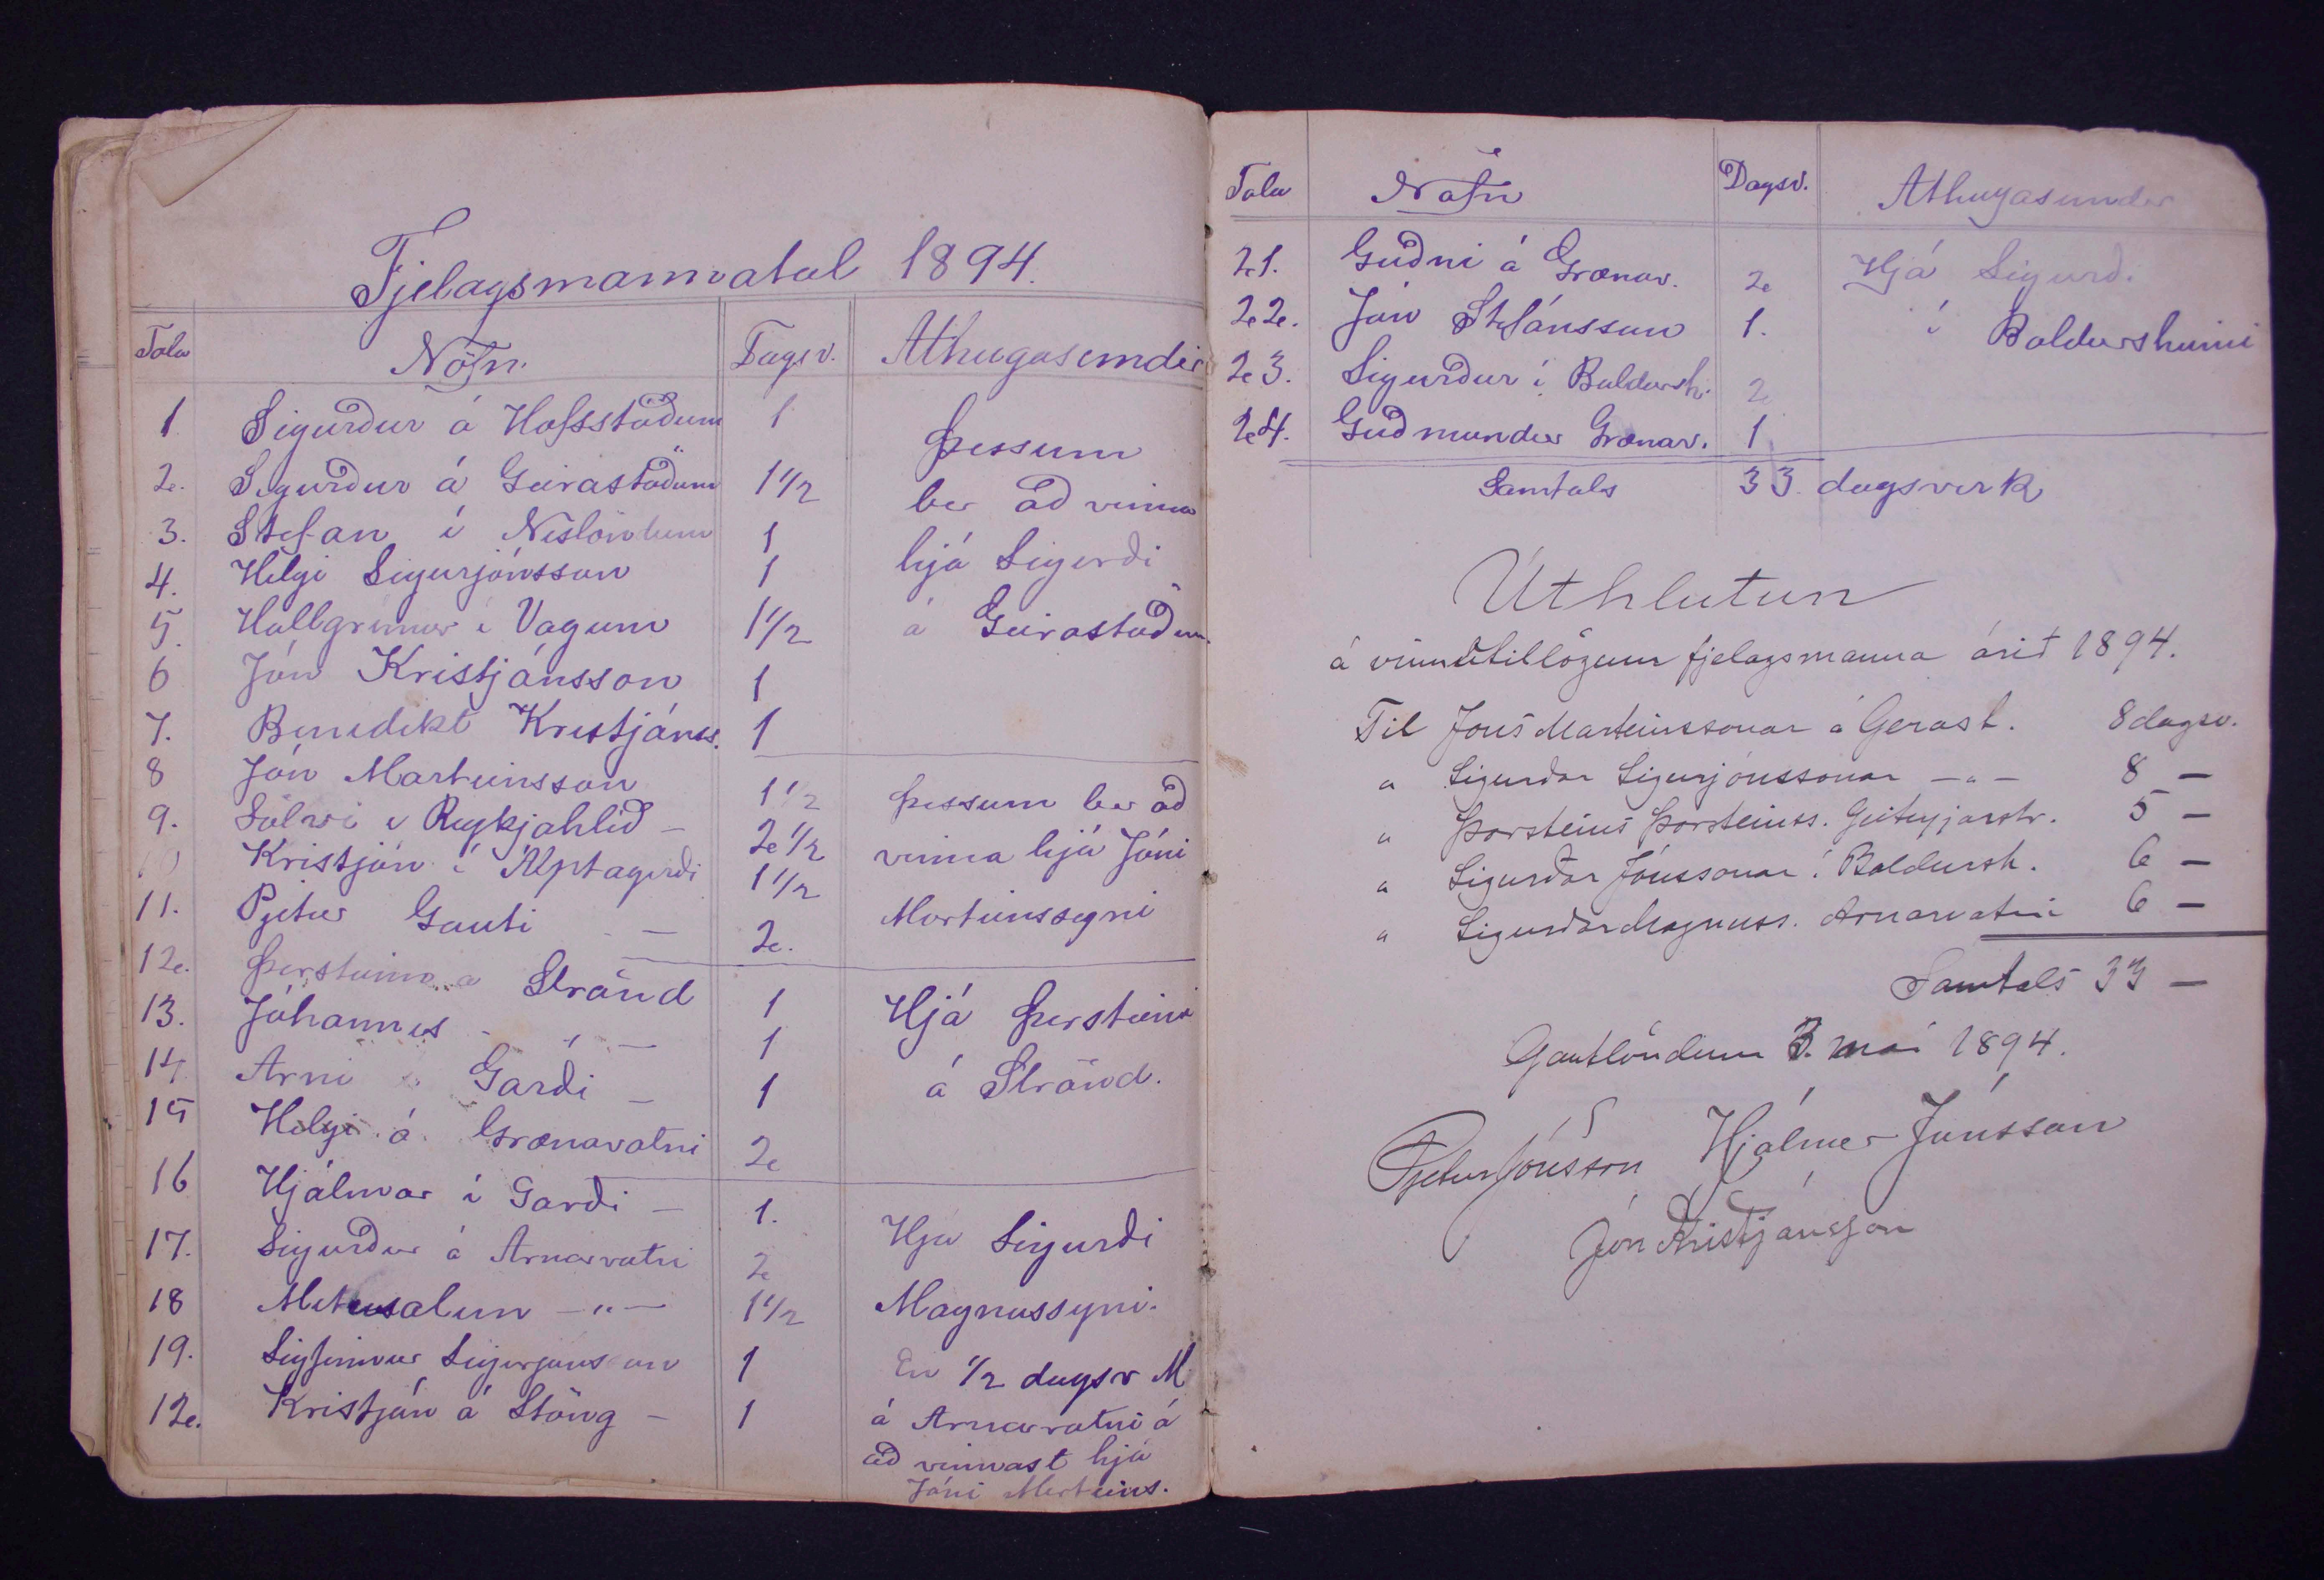 Fjelagsmannatal 1894.
Tala Nöfn. Dagsv. Athugasemdir
1 Sigurður á Hofsstöðum 1 Þessum
2. Sigurður á Geirastöðum 1 1/2 ber að vinna
3. Stefan í Neslöndum 1 hjá Sigurði
4. Helgi Sigurjónsson 1 á Geirastöðum.
5. Hallgrímur í Vogum 1 1/2
6 Jón Kristjánsson 1
7. Benedikt Kristjánss. 1
8 Jón Marteinsson 1 1/2 Þessum ber að
9. Sölvi í Reykjahlið – 2 1/2 vinna hjá Jóni
10 Kristján í Álptagerði 1 1/2 Marteinssyni
11. Pjetur Gauti – 2.
12. Þorsteinn á Strönd 1 Hjá Þorsteini
13. Jóhannes - " — 1 á Strönd.
14. Arni í Garði – 1
15 Helgi á Grænavatni 2
16 Hjálmar í Garði – 1. Hja Sigurði
17. Sigurður á Arnarvatni 2 Magnussyni.
18 Metusalem — " — 1 1/2
19. Sigfinnur Sigurjonsson 1 En 1/2 dagsv M
12. Kristján á Stöng – 1 á Arnarvatni á
að vinnast hjá
Jóni Marteins.
Tala Nöfn Dagsv. Athugasemdir
21. Guðni á Grænav. 2 Hjá Sigurð.
22. Jón Stefánsson 1. í Baldursheimi
23. Sigurður í Baldursh. 2
24. Guðmundur Grænav. 1
Samtals 33 dagsverk
Úthlutun
á vinnutillögum fjelagsmanna árið 1894.
Til Jóns Marteinssonar á Gerast. 8 dagsv.
" Sigurðar Sigurjónssonar — " — 8 —
" Þorsteins Þorsteinss. Geiteyjarstr. 5 —
" Sigurðar Jónssonar í Baldursh. 6 —
" Sigurðar Magnuss. Arnarvatni 6 —
Samtals 33 —
Gautlöndum 3. mai 1894.
Pjetur Jónsson Hjálmar Jónsson
Jón Kristjánsson